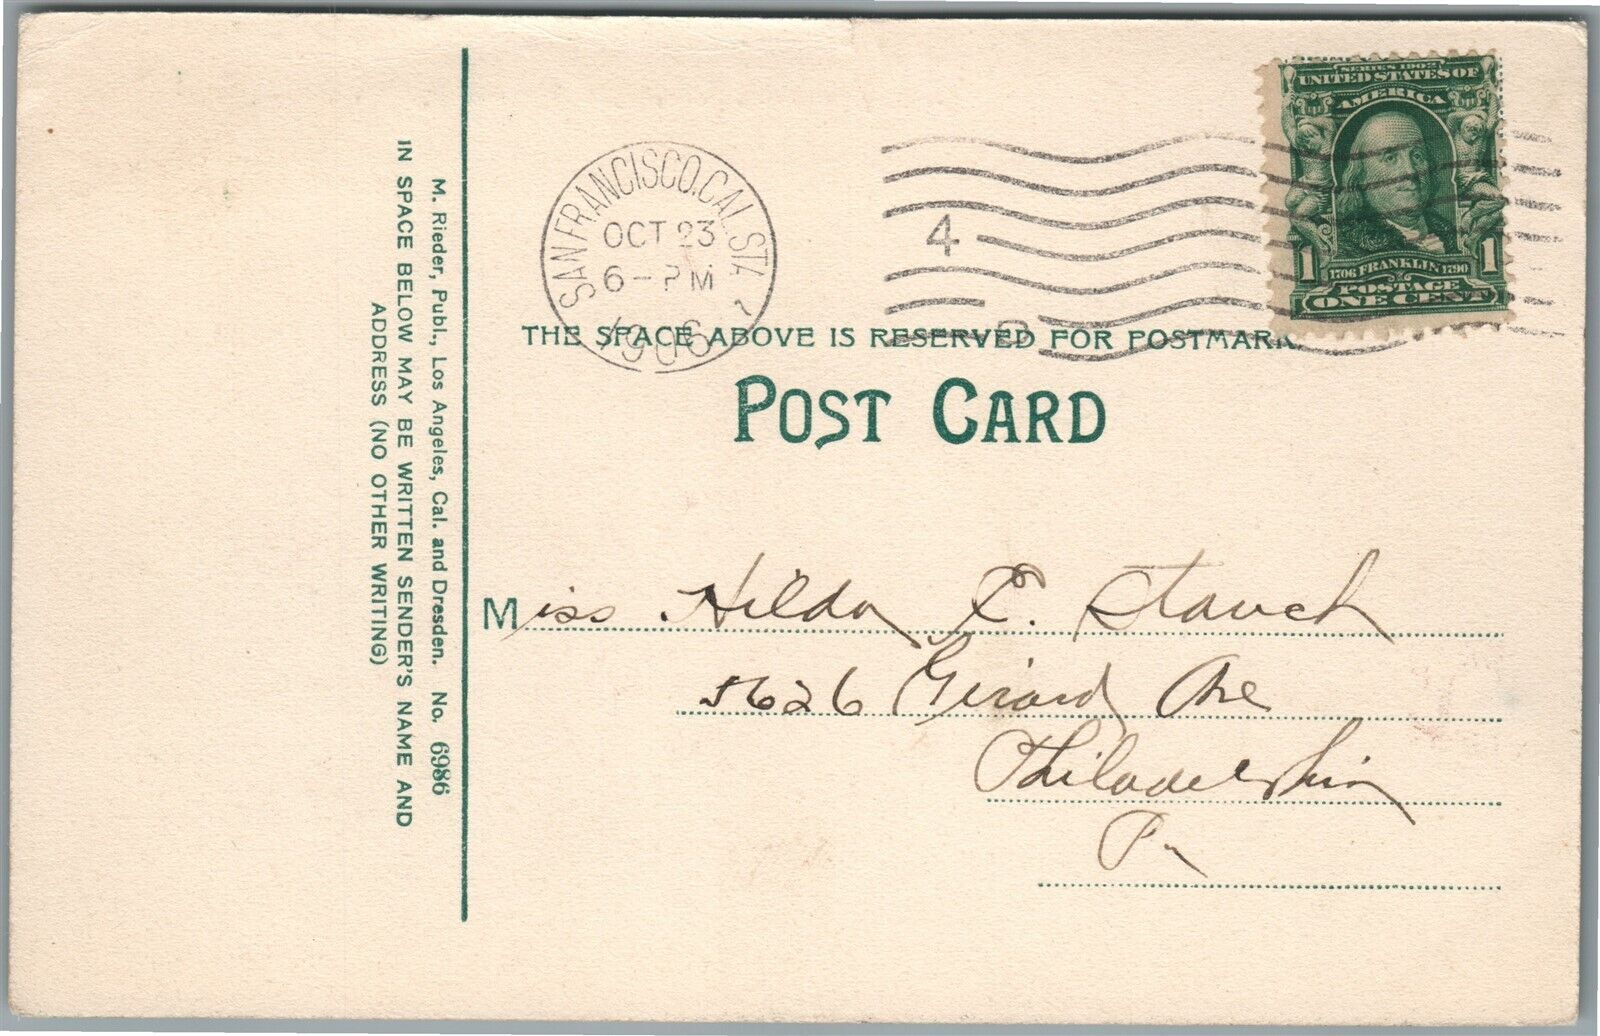 M. Rieder, Publ., Los Angeles, Cal. and Dresden. No. 6986
IN SPACE BELOW MAY BE WRITTEN SENDER'S NAME AND
ADDRESS (NO OTHER WRITING)
SAN FRANCISCO, CAL. STA
OCT 23
6-PM
1906
4
SERIES 1902
UNITED STATES OF
AMERICA
1 1
1706 FRANKLIN 1790
POSTAGE
ONE CENT
THE SPACE ABOVE IS RESERVED FOR POSTMARK.
POST CARD
Miss Hilda E. Stauch
5626 Girard Ave
Philadelphia
Pa